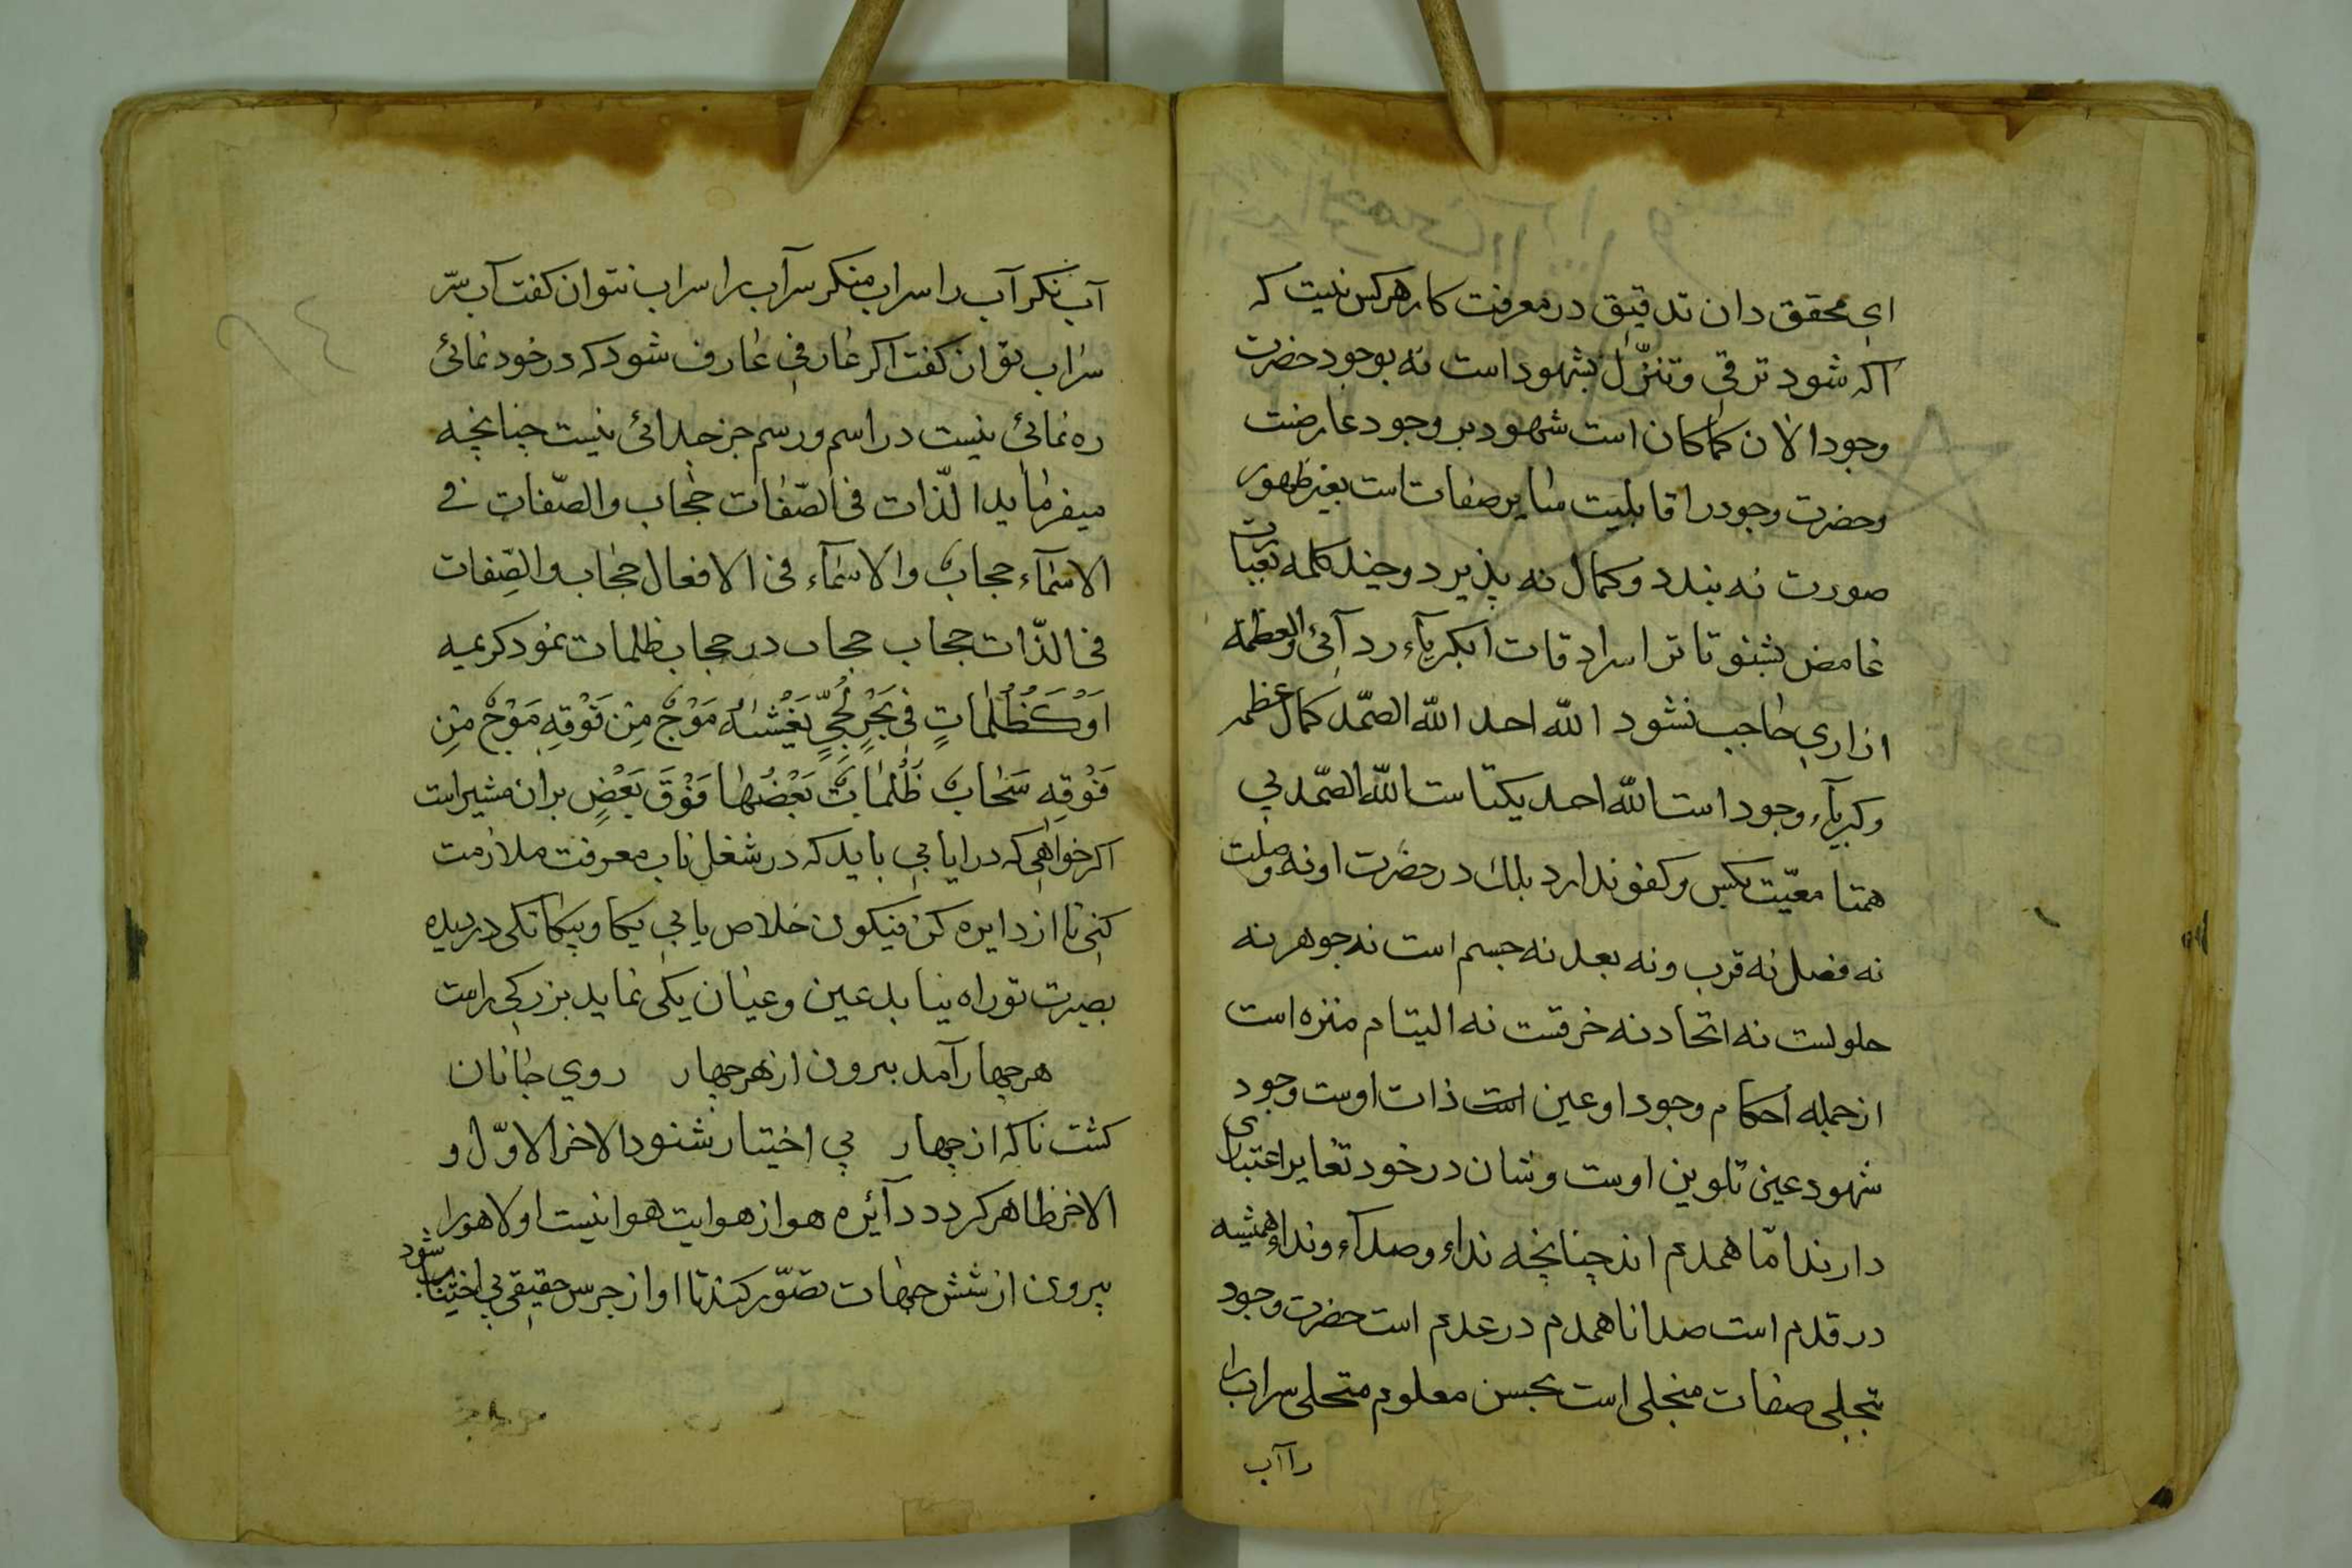 ای محقق دان تدقیق در معرفت کار هرکس نیست که
اکه شود ترقی و تنزّل بشهود است نه بوجود حضرت
وجود الآن کما کان است شهود بر وجود عارضت
وحضرت وجود را قابلیت سایر صفات است بغیر ظهور
صورت نه بندد و کمال نه پذیرد و چند کلمه بعبارت
غامض بشنو تا ترا اسرار قات الکبریآء ردآئی والعظمة
ازاری حاجب نشود الله احد الله الصّمد کمال عظمة
وکبریآء وجود است الله احد یکتاست الله الصّمد بی
همتا معیّت بکس و کفو ندارد بلك در حضرت او نه وصلت
نه فصل نه قرب و نه بعد نه جسم است نه جوهر نه
حلولست نه اتحاد نه خرقست نه الیتام منزه است
از جمله احکام وجود او عین است ذات اوست وجود
شهود عین تلوین اوست و شان در خود تغایر اعتباری
دارند امّا همدم اند چنانچه نداء و صداء و نداء همیشه
در قدم است صدا نا همدم در عدم است حضرت وجود
بتجلی صفات منجلی است بحسن معلوم متحلی سراب را
را آب
آب نکر آب را سراب منکر سرآب را سراب نتوان کفت آب سرّ
سراب توان کفت اکر عارفی عارف شود که در خود نمائی
ره نمائی نیست در اسم و رسم جز جدائی نیست چنانچه
میفرماید الذّات فی الصّفات حجاب والصّفات فی
الاسمآء حجابٌ والاسمآء فی الافعال حجاب والصّفات
فی الذّات حجاب حجاب در حجاب ظلمات نمود کریمه
اَوْ کَظُلُمَاتٍ فِی بَحْرٍ لُجِّیٍّ یَغْشٰهُ مَوْجٌ مِنْ فَوْقِهِ مَوْجٌ مِنْ
فَوْقِهِ سَحَابٌ ظُلُمَاتٌ بَعْضُهَا فَوْقَ بَعْضٍ بران مشیر است
اکر خواهی که در ایابی باید که در شغل ناب معرفت ملازمت
کنی تا از دایره کن فیکون خلاص یابی یکما و یکمانکی در دیده
بصیرت تو راه نیابد عین و عیان یکی نماید بزرکی راست
هر چهار آمد بیرون از هر چهار روی جانان
کشت ناکه از چهار بی اختیار شنود الاخر الاوّل و
الاخر ظاهر کردد دآئره هو از هوایت هوا نیست اولا هورا
بیرون از شش جهات تصوّر کند تا اواز جرس حقیقی بی اختیار شود